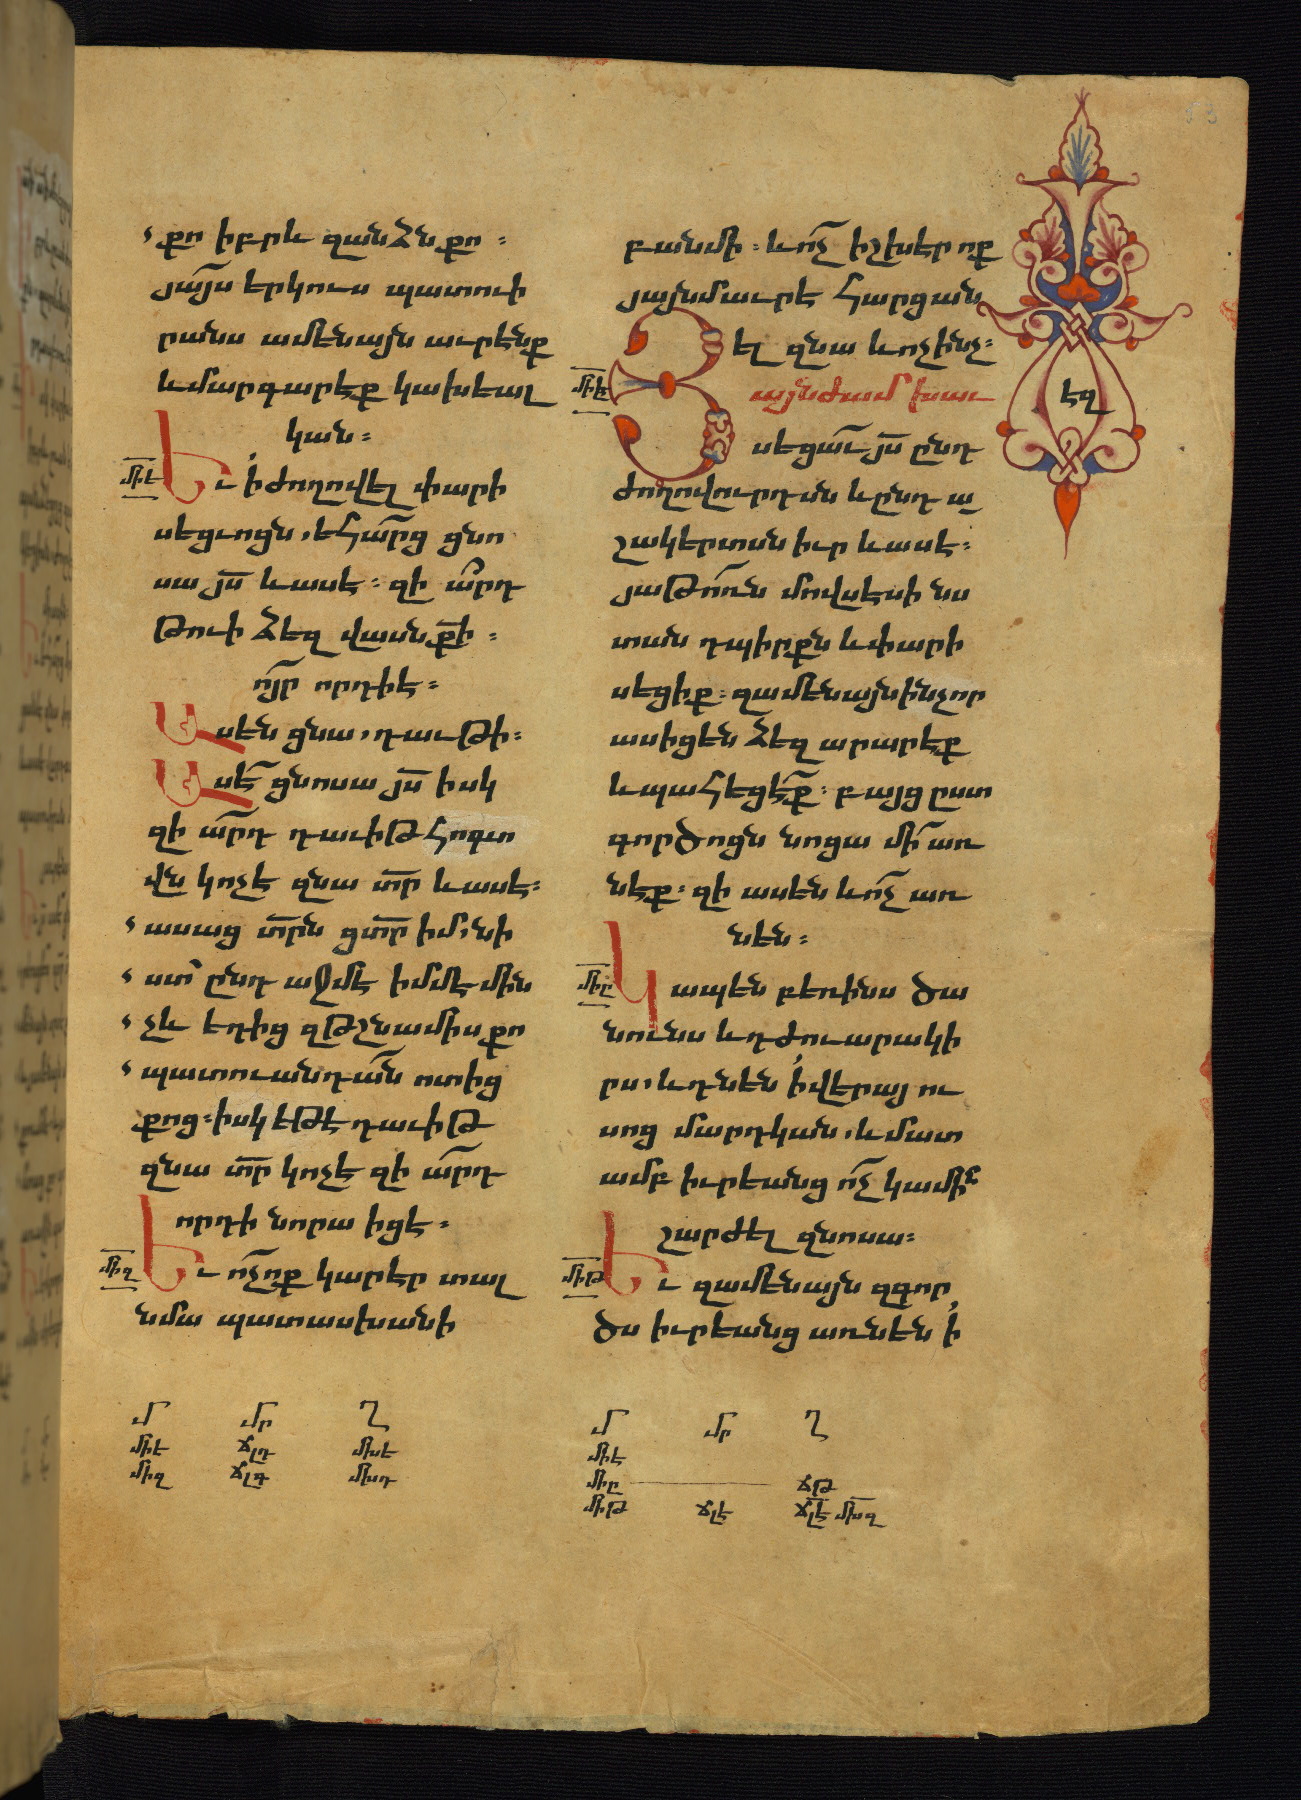 քո իբրև զանձն քո։
յա՟յս երկուս պատուի
րանս ամենայն աւրէնք
և մարգարէք կախեալ
կան։
մ՟իե
Եւ ի ժողովել փարի
սեցւոցն, եհա՟րց ցնո
սա յ՟ս և ասէ։ զի ա՟րդ
թուի ձեզ վասն ք՟ի։
ո՟յր որդի է։
Ասեն ցնա, դաւթի։
Ասէ՟ ցնոսա յ՟ս իսկ
զի ա՟րդ դաւիթ հոգւո
վն կոչէ զնա տ՟ր և ասէ։
ասաց տ՟րն ցտ՟ր իմ, նի
ստ ընդ աջմէ իմմէ մին
չև եդից զթշնամիս քո
պատուանդա՟ն ոտից
քոց։ իսկ եթէ դաւիթ
զնա տ՟ր կոչէ զի ա՟րդ
որդի նորա իցէ։
մ՟իզ
Եւ ո՟չ ոք կարէր տալ
նմա պատասխանի
մ մր ղ
մ՟իե ճլդ մ՟խե
մ՟իզ ճլգ մ՟խդ
բանմի։ և ո՟չ իշխէր ոք
յայնմաւրէ հարցան
ել զնա և ոչինչ։
մ՟իէ
Յայնժամ խաւ
սեցա՟ւ յ՟ս ընդ
ժողովուրդսն և ընդ ա
շակերտսն իւր և ասէ։
յաթո՟ռն մովսէսի նս
տան դպիրքն և փարի
սեցիք։ զամենայն ինչ որ
ասիցեն ձեզ արարէք
և պահեցէ՟ք։ բայց ըստ
գործոցն նոցա մի՟ առ
նէք։ զի ասեն և ո՟չ առ
նեն։
մ՟իը
Կապեն բեռինս ծա
նունս և դժուարակի
րս, և դնեն ի վերայ ու
սոց մարդկան, և մատ
ամբ իւրեանց ո՟չ կամի՟ն
շարժել զնոսա։
մ՟իթ
Եւ զամենայն զգոր
ծս իւրեանց առնեն ի
մ մր ղ
մ՟իէ
մ՟իը ճթ
մ՟իթ ճլէ ճլէ մ՟խզ
էզ